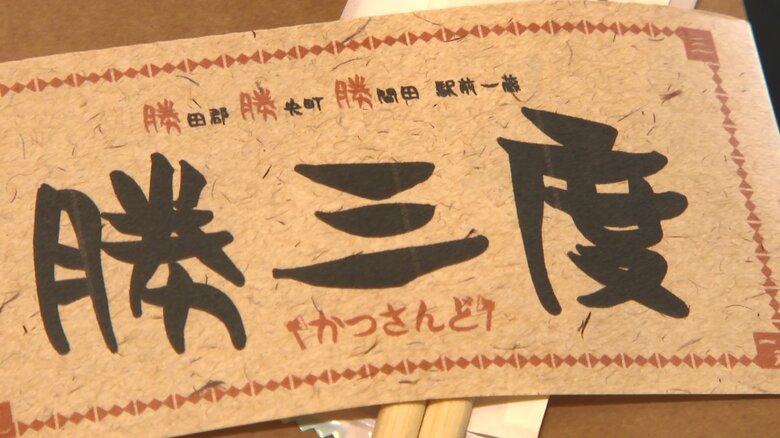 勝田郡 勝央町 勝間田 駅前一番
勝三度
かつさんど